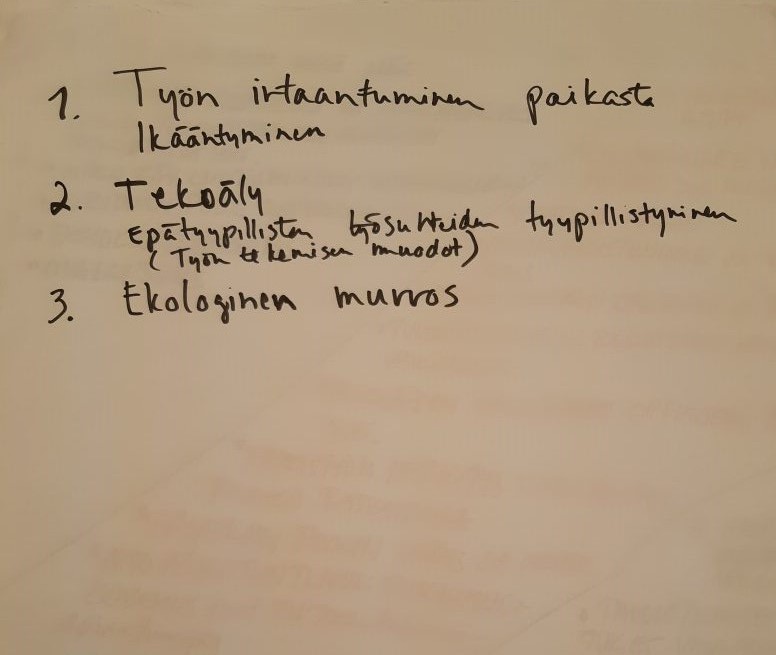 1. Työn irtaantuminen paikasta
Ikääntyminen
2. Tekoäly
Epätyypillisten työsuhteiden tyypillistyminen
(Työn tekemisen muodot)
3. Ekologinen murros